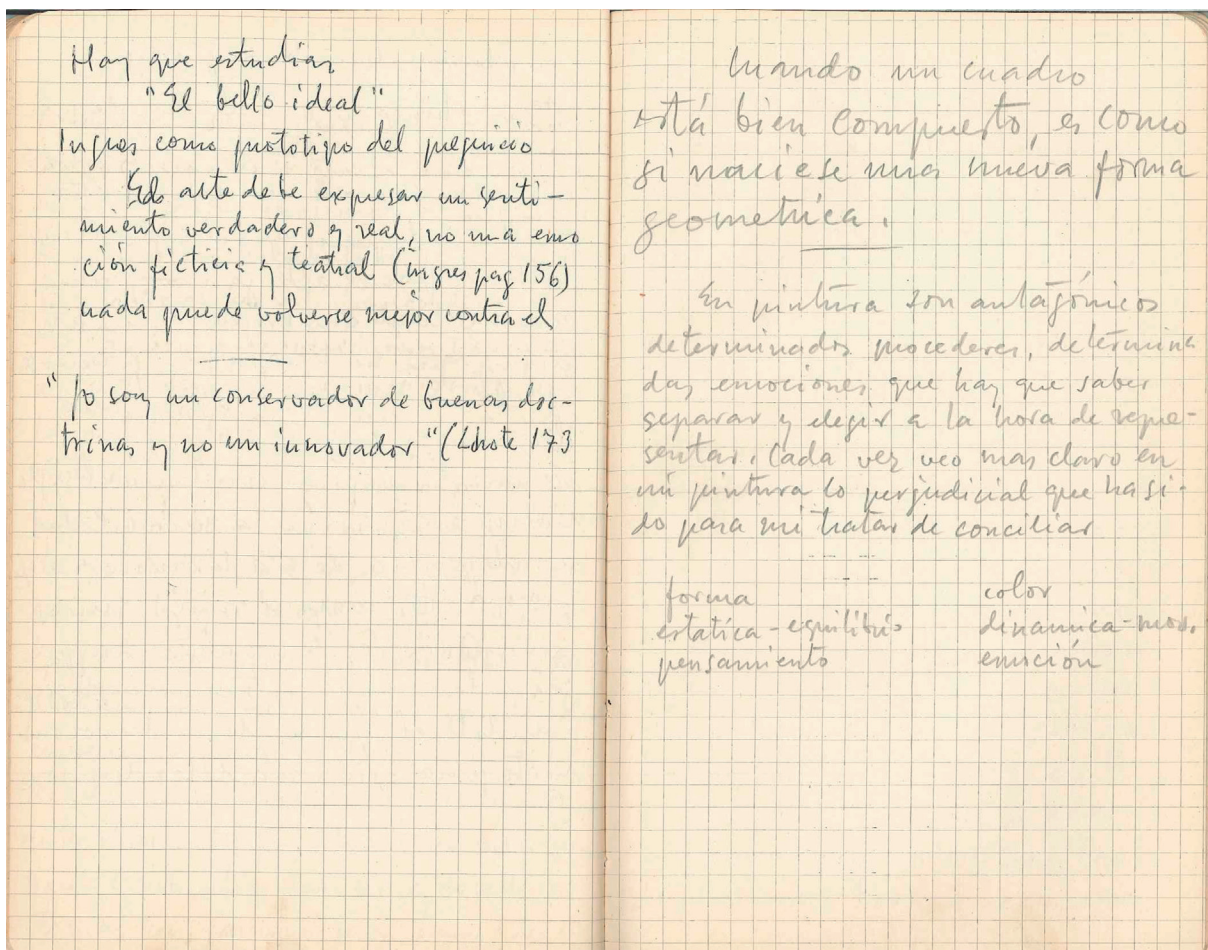 Hay que estudiar
"El bello ideal"
Ingres como prototipo del prejuicio
El arte debe expresar un senti-
miento verdadero y real, no una emo
ción ficticia y teatral (ingres pag 156)
nada puede volverse mejor contra el
"yo soy un conservador de buenas doc-
trinas y no un innovador" (Lhote 173
Cuando un cuadro
está bien compuesto, es como
si naciese una nueva forma
geometrica.
En pintura son antagónicos
determinados procederes, determina
das emociones que hay que saber
separar y elegir a la hora de repre-
sentar. Cada vez veo mas claro en
mi pintura lo perjudicial que ha si-
do para mi tratar de conciliar
forma color
estatica - equilibrio dinamica - mov.
pensamiento emoción